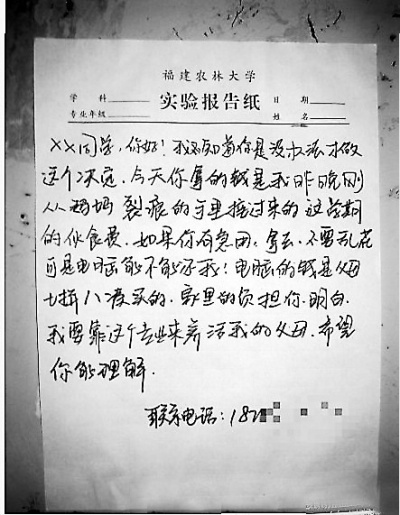 福建农林大学
学科 实验报告纸 日期
专业年级 姓名
XX同学,你好!我不知道你是没办法才做
这个决定,今天你拿的钱是我昨晚刚
从妈妈裂痕的手里接过来的这学期
的伙食费,如果你有急用,拿去,不要乱花
可是电脑能不能还我!电脑的钱是父母
七拼八凑买的,家里的负担你明白,
我要靠这个专业来养活我的父母,希望
你能理解.
联系电话:182